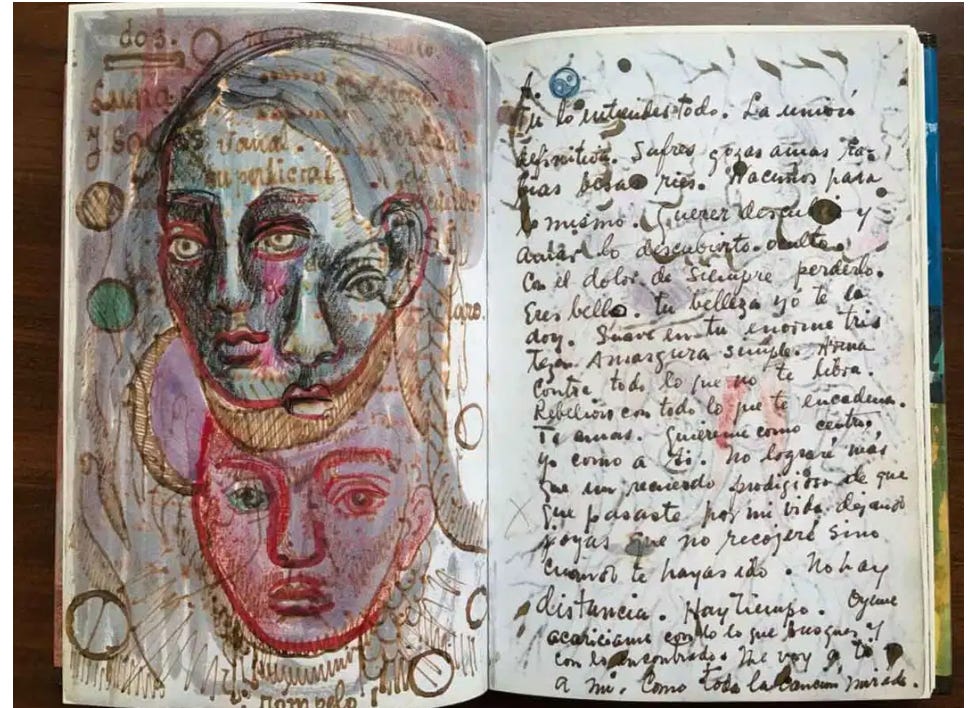 dos.
Luna
y soles vana.
superficial
de
Tu lo entiendes todo. La unión
definitiva. Sufres gozas amas ra-
bias besas ries. Nacimos para
lo mismo. Querer descubrir y
amar lo descubierto. oculto.
Con el dolor de siempre perderlo.
Eres bello. tu belleza yó te la
doy. Suave en tu enorme tris
teza. Amargura simple. Arma
contra todo lo que no te libra.
Rebelion con todo lo que te encadena.
Te amas. quiereme como centro,
yo como a ti. No lograré más
que un recuerdo prodigioso de que
que pasaste por mi vida dejando
joyas que no recojeré sino
cuando te hayas ido. No hay
distancia. Hay tiempo. Oyeme
acariciame con lo que busques y
con lo encontrado. Me voy á ti
a mi. Como toda la cancion mirada.
rompelo